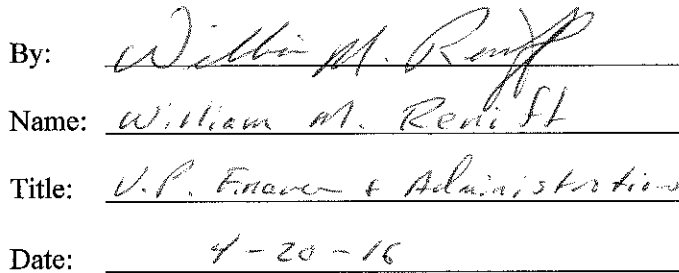 By: William M. Reniff
Name: William M. Reniff
Title: V.P. Finance & Administration
Date: 4-20-16